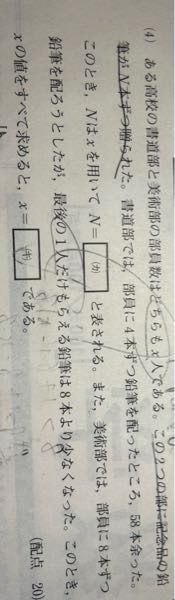 (4) ある高校の書道部と美術部の部員数はどちらも x 人である。この2つの部に記念品の鉛
筆が N 本ずつ贈られた。書道部では，部員に4本ずつ鉛筆を配ったところ，58本余った。
このとき，N は x を用いて N = (カ) と表される。また，美術部では，部員に8本ずつ
鉛筆を配ろうとしたが，最後の1人だけもらえる鉛筆は8本より少なくなった。このとき，
x の値をすべて求めると，x = (キ) である。
(配点 20)